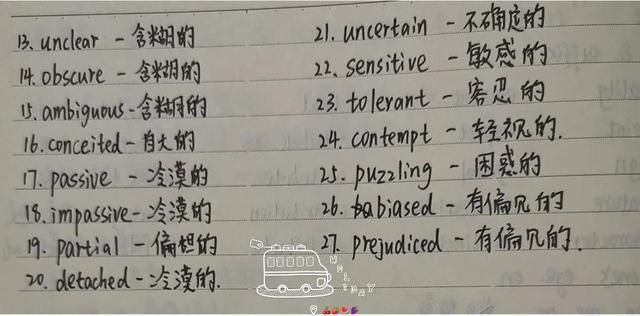 13. unclear - 含糊的
14. obscure - 含糊的
15. ambiguous - 含糊的
16. conceited - 自大的
17. passive - 冷漠的
18. impassive - 冷漠的
19. partial - 偏袒的
20. detached - 冷漠的.
21. uncertain - 不确定的
22. sensitive - 敏感的
23. tolerant - 容忍的
24. contempt - 轻视的.
25. puzzling - 困惑的
26. biased - 有偏见的
27. prejudiced - 有偏见的.